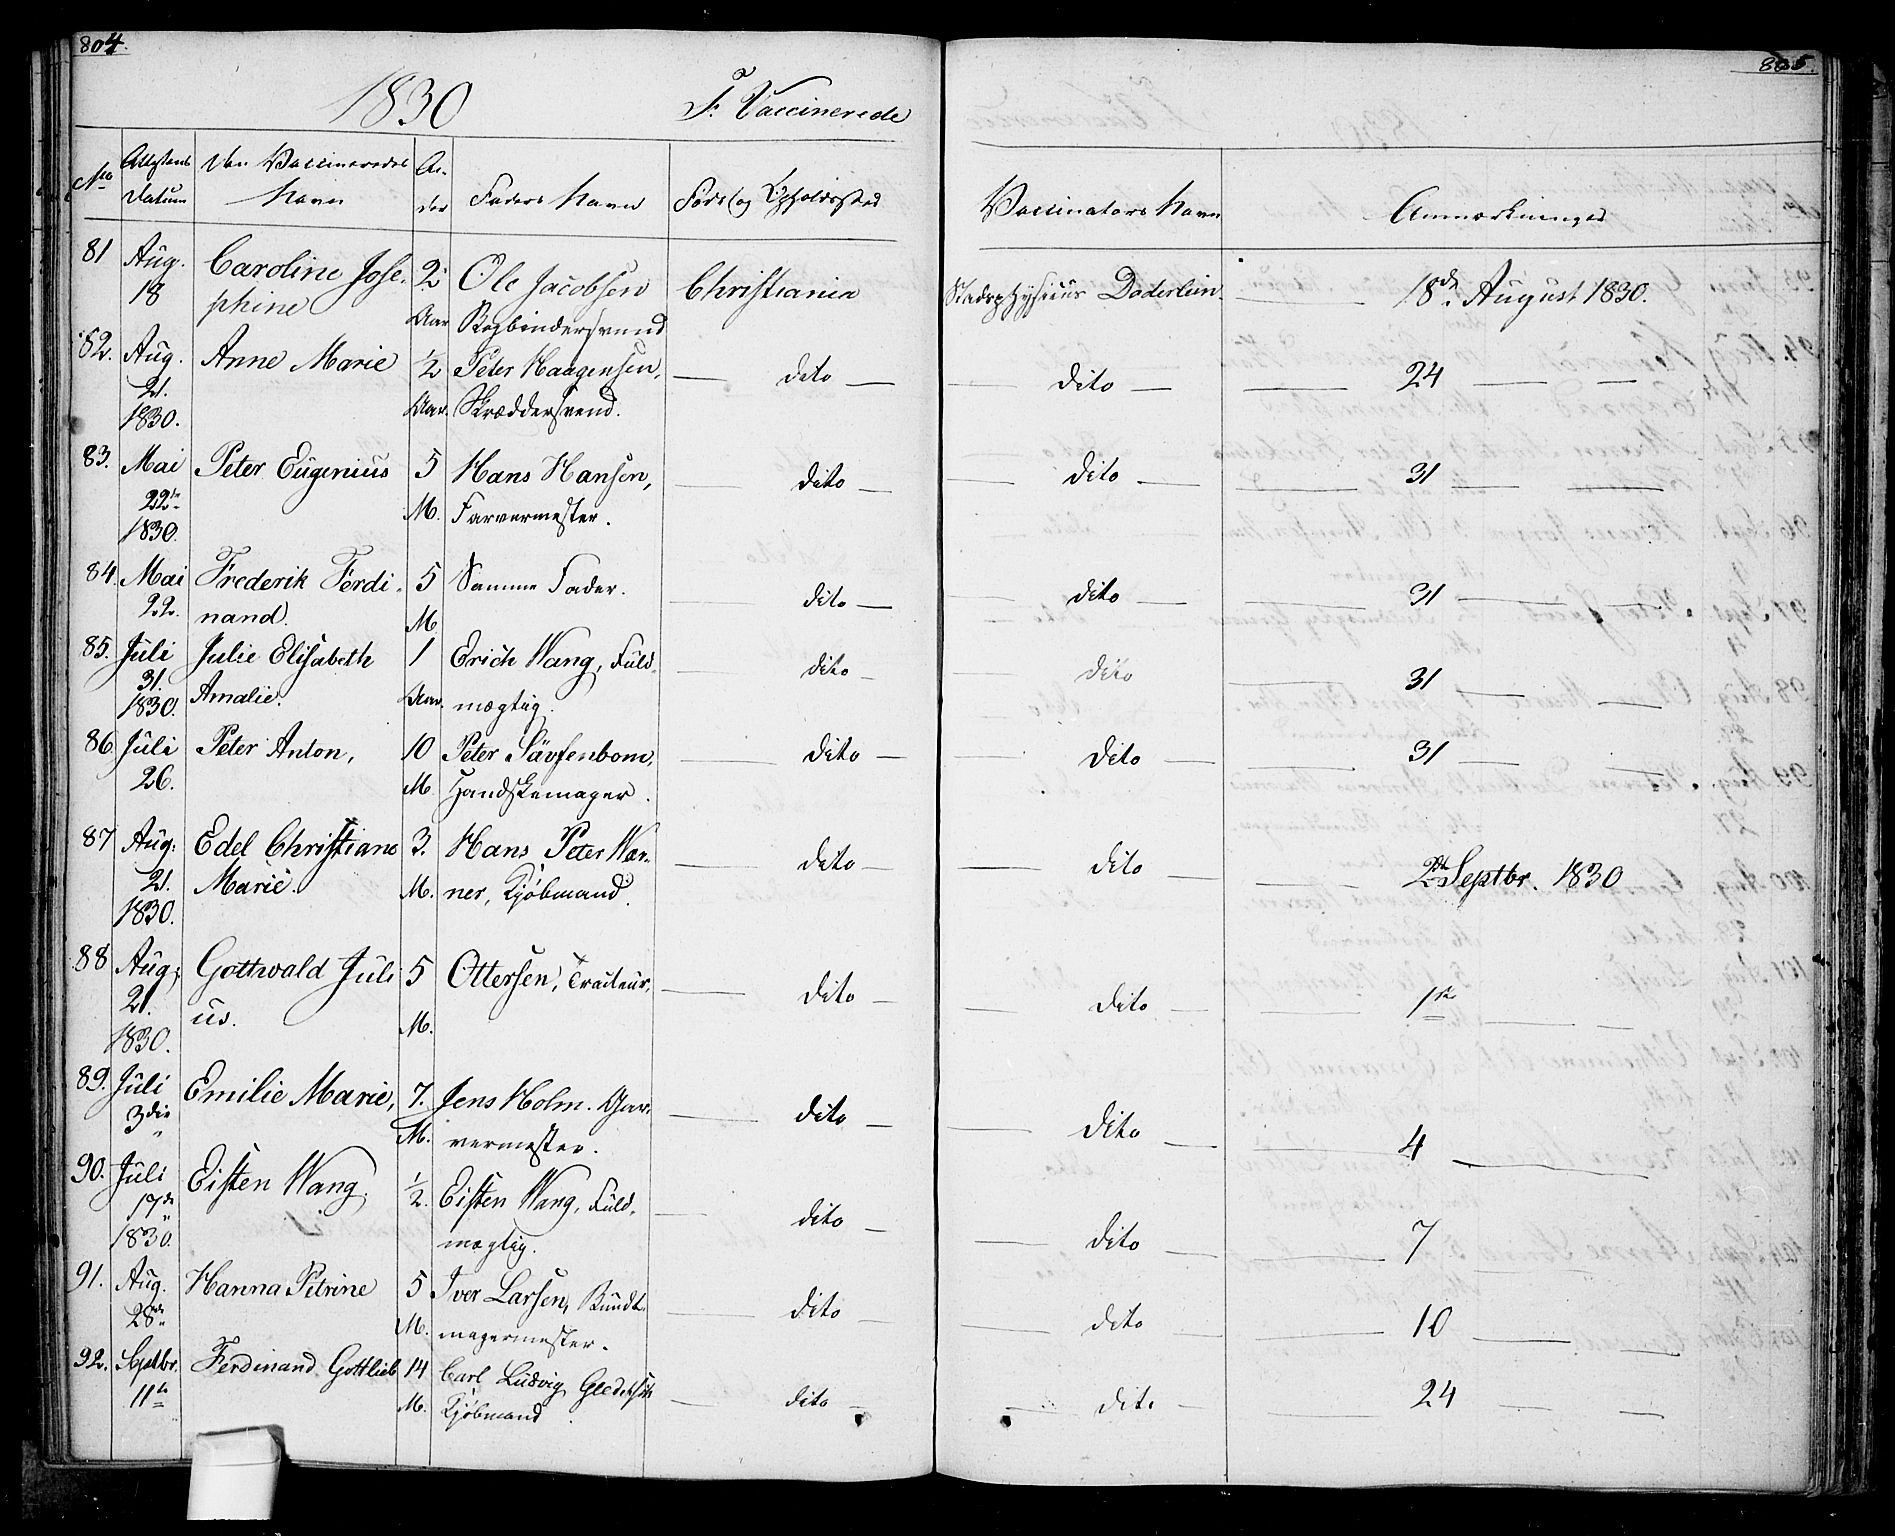 804.
805.
1830
F. Vaccinerede
No
Attestens Datum
Den Vaccineredes Navn
Al-der
Faders Navn
Føde- og Opholdssted
Vaccinators Navn
Anmærkninger
81 Aug. 18 Caroline Jose-phine 2 Aar Ole Jacobsen Bogbindersvend Christiania Stadsphysicus Døderlein 18de August 1830.
82. Aug. 21. 1830. Anne Marie 1/2 Aar. Peter Haagensen, Skræddersvend. — dito — — dito — — 24 — —
83. Mai 22de 1830. Peter Eugenius 5 M. Hans Hansen, Farvermester. — dito — — dito — — 31 — —
84. Mai 22. Frederik Ferdi-nand. 5 M Samme Fader. — dito — — dito — — 31 — —
85. Juli 31. 1830. Julie Elisabeth Amalie. 1 Aar. Erich Wang, Fuld-mægtig. — dito — — dito — 31 — —
86 Juli 26. Peter Anton, 10 M Peter Handskemager. — dito — — dito — — 31 — —
87 Aug. 21. 1830. Edel Christiane Marie. 3. M. Hans Peter Wær-ner, Kjøbmand. — dito — — dito — — 2den Septbr. 1830
88 Aug. 21. 1830. Gottwald Juli-us. 5 M. Ottersen, Traiteur, — dito — — dito — — 1ste — —
89. Juli 3die Emilie Marie, 7. M. Jens Holm. Gar-vermester. — dito — — dito — — 4 —
90. Juli 17de 1830. Eisten Wang, 1/2. Eisten Wang, Fuld-mægtig. — dito — — dito — — 7 — —
91. Aug. 28de Hanna Petrine 5 M. Iver Larsen, Bundt-magermester. — dito — — dito — — 10 — —
92. Septbr. 11te Ferdinand Gottlieb 14 M. Carl Ludvig Kjøbmand — dito — — dito — — 24 — —